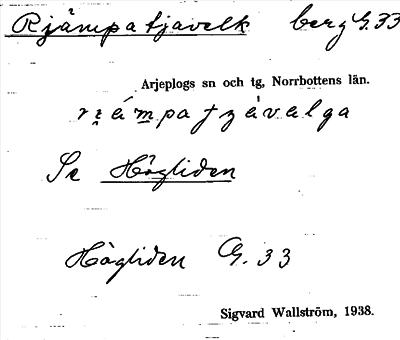 Rjämpatjavelk berg G.33
Arjeplogs sn och tg, Norrbottens län.
Se Högliden
Högliden G. 33
Sigvard Wallström, 1938.